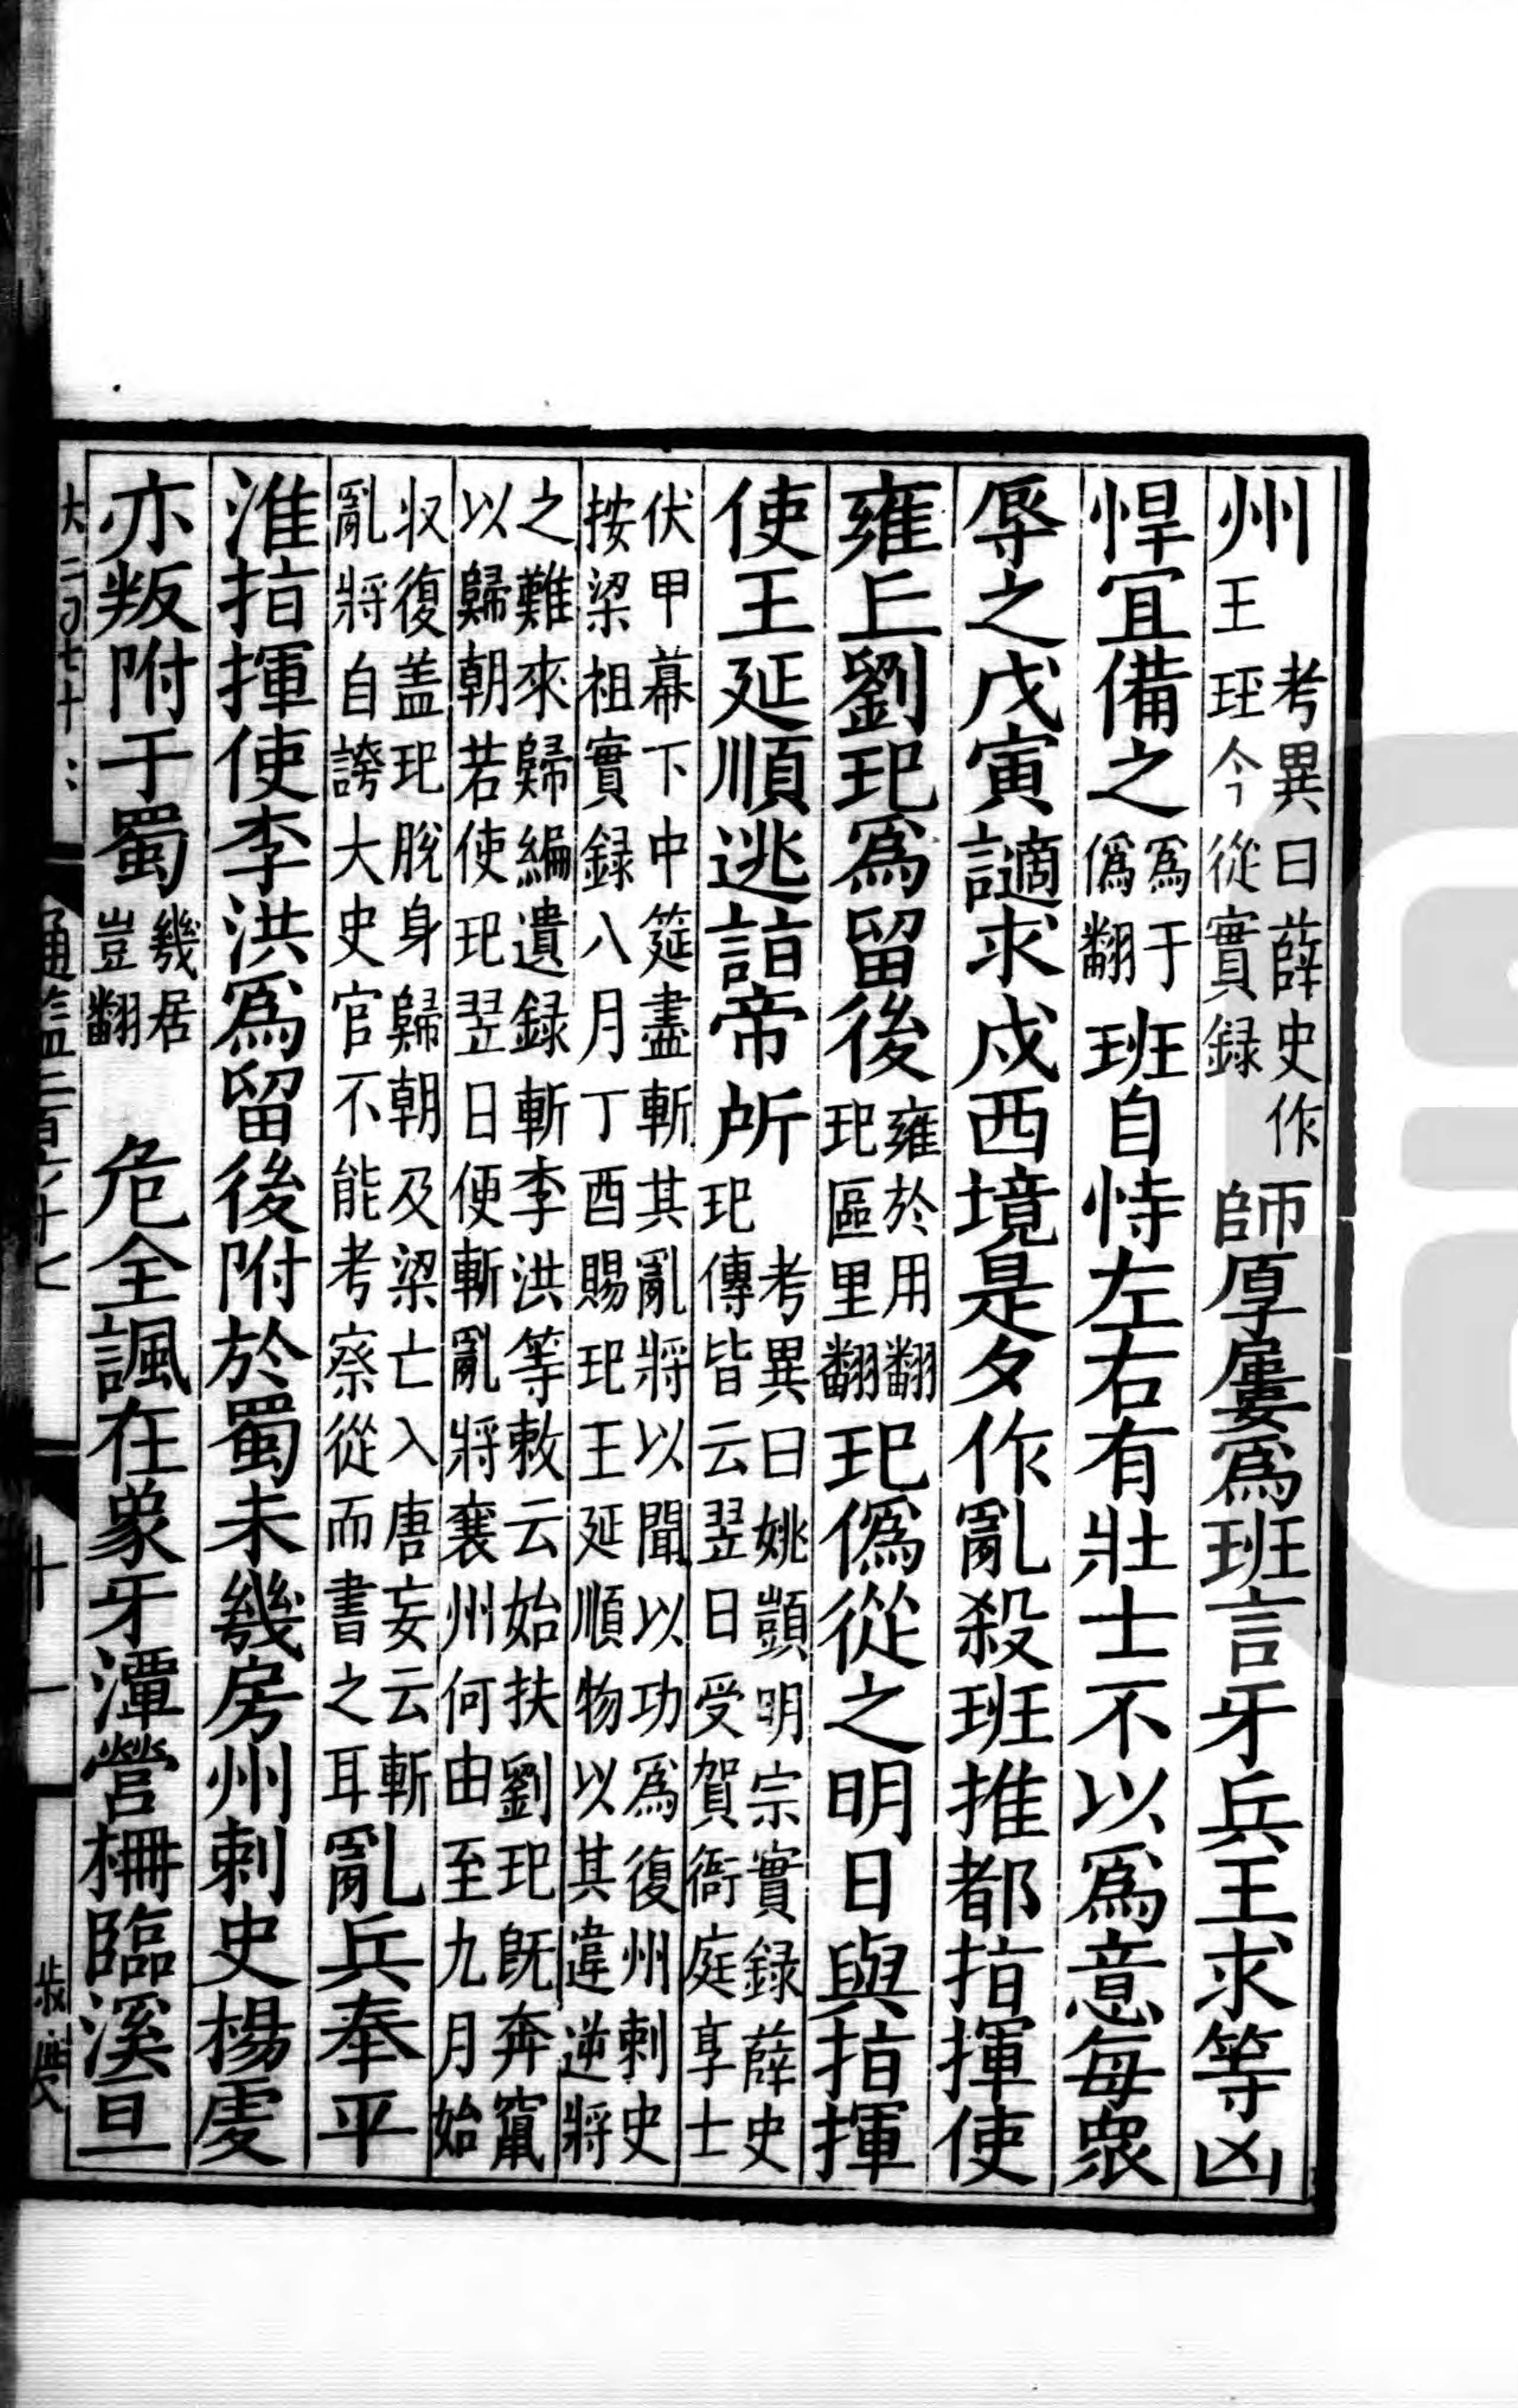 州考異曰薛史作王珏今從實録師厚屢爲班言牙兵王求等凶
悍宜備之爲于僞翻班自恃左右有壯士不以爲意每衆
辱之戊寅讁求戍西境是夕作亂殺班推都指揮使
雍丘劉玘爲留後雍於用翻玘區里翻玘僞從之明日與指揮
使王延順逃詣帝所考異曰姚顗明宗實録薛史玘傳皆云翌日受賀衙庭享士
伏甲幕下中筵盡斬其亂將以聞以功爲復州刺史
按梁祖實録八月丁酉賜玘王延順物以其違逆將
之難來歸編遺録斬李洪等敕云始扶劉玘旣奔竄
以歸朝若使玘翌日便斬亂將襄州何由至九月始
収復盖玘脫身歸朝及梁亡入唐妄云斬
亂將自誇大史官不能考察從而書之耳亂兵奉平
淮指揮使李洪爲留後附於蜀未幾房州刺史楊虔
亦叛附于蜀幾居豈翻危全諷在象牙潭營柵臨溪亘
通鑑二百六十七
十一